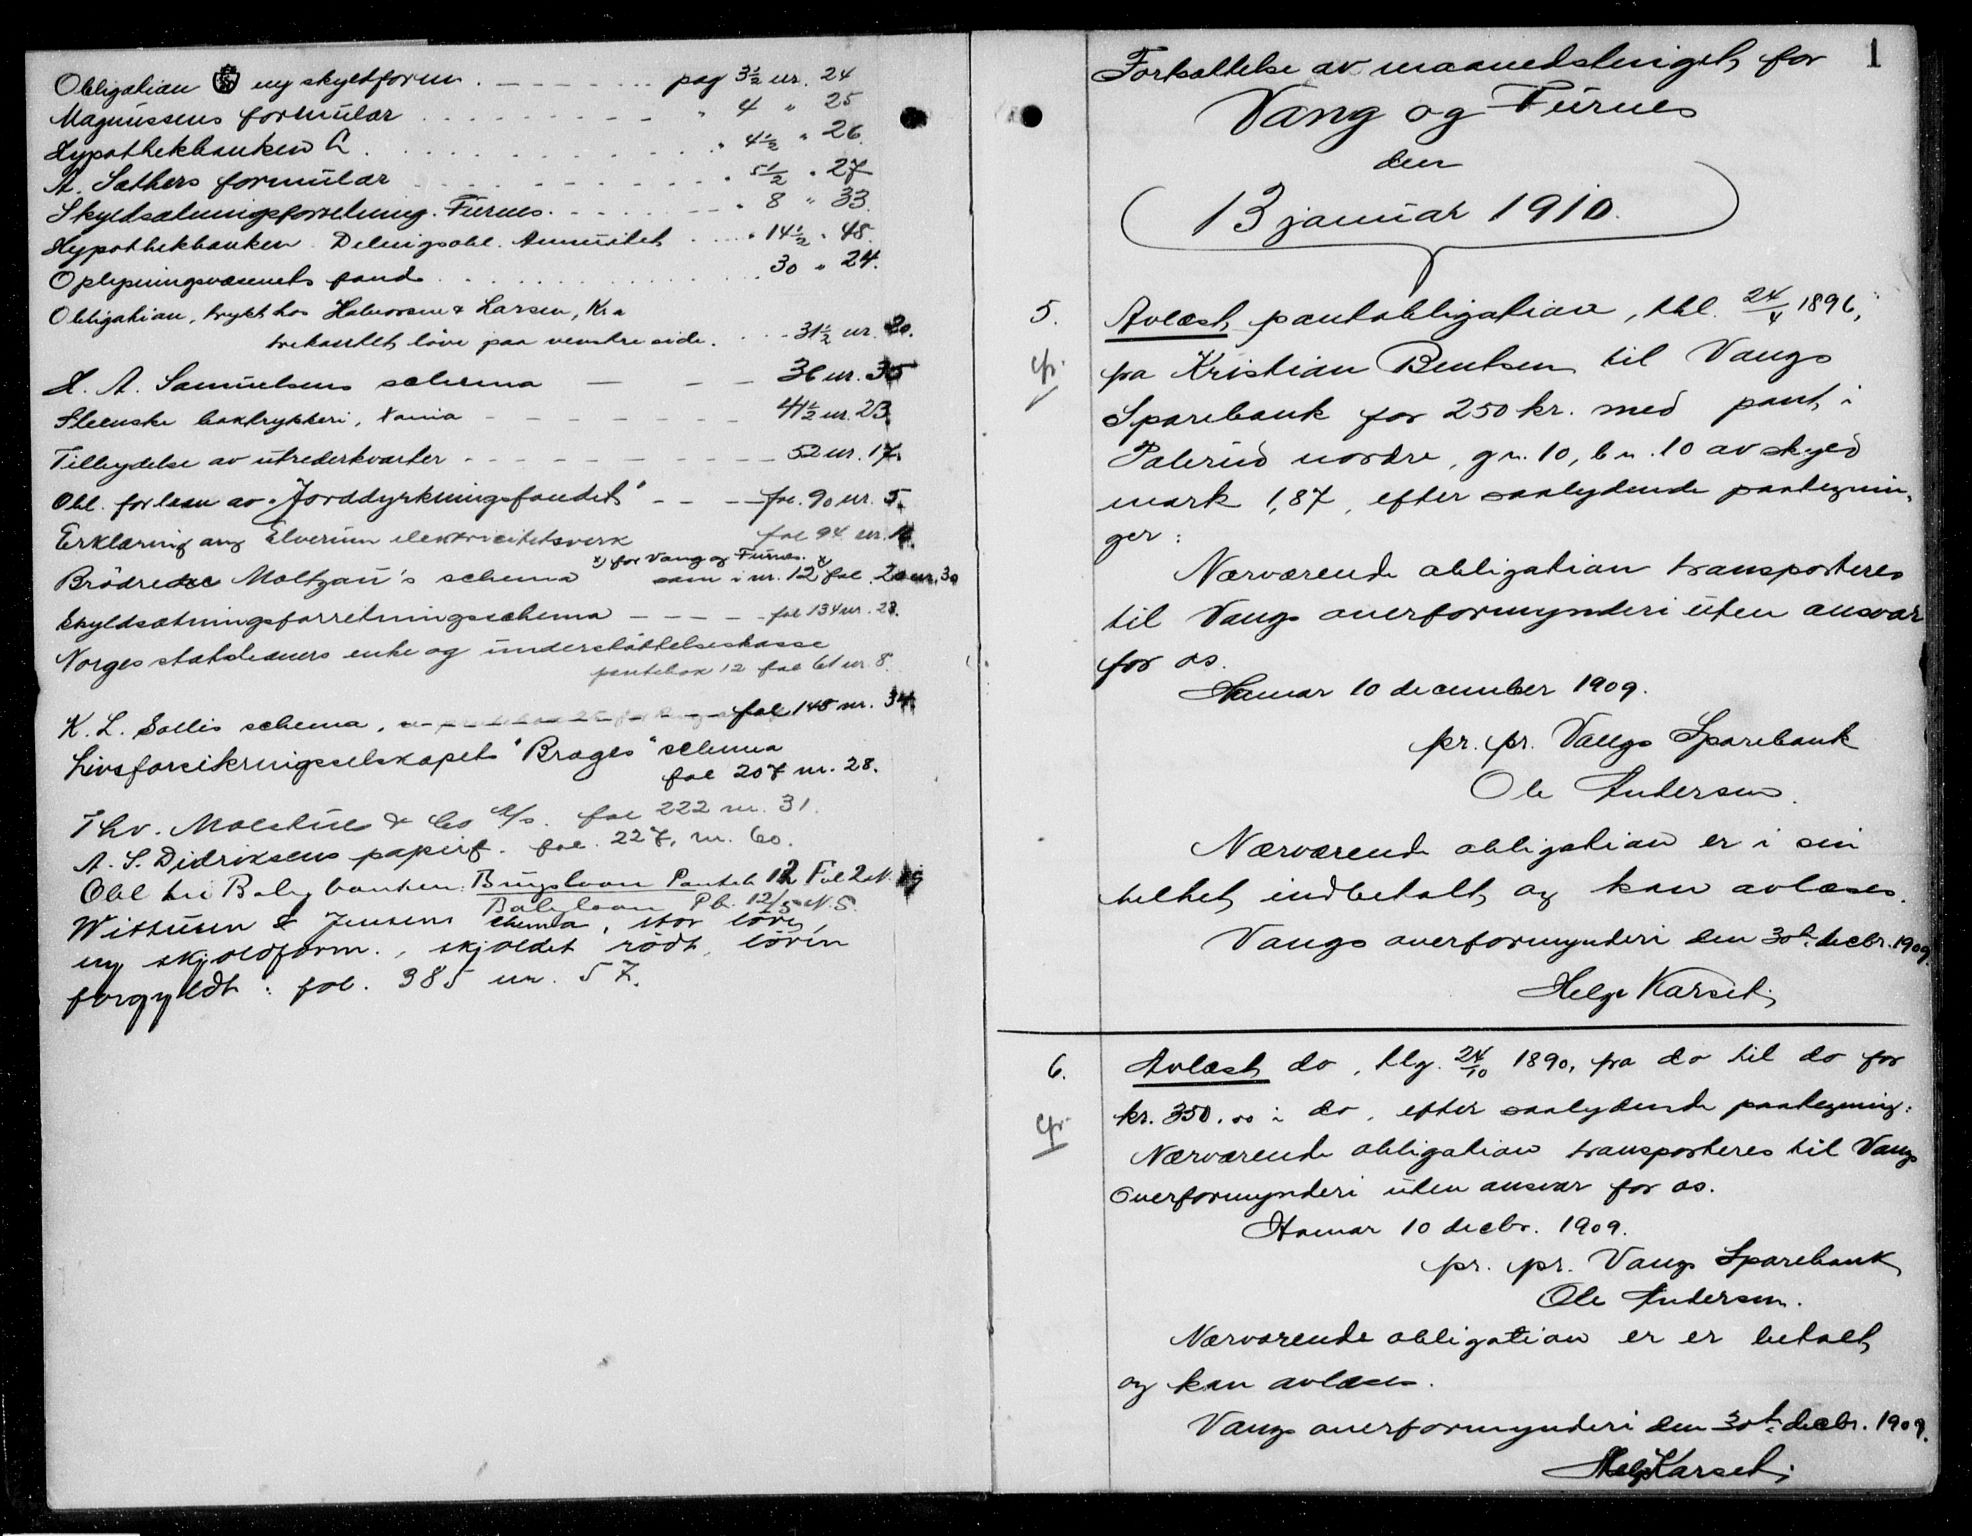 Obligation ny skyldform. - - - - . . . pag 3½ nr. 24
Magnussens formular . . . . . . . . . " 4 " 25
Hypothekbanken A. . . . . . . . . . . " 4½ " 26.
A. Sæthers formular . . . . . . . . . " 5½ " 27
Skyldsætningsforretning. Furnes. . . . . . " 8 " 33.
Hypothekbanken. Delingsobl. Annuitet . . . . " 14½ " 48.
Oplysningsvæsenets fond . . . . . . . . . 30 " 24.
Obligation, trykt hos Halvorsen & Larsen, Kra
trekantet løve paa venstre side. . . - 31½ nr. 20.
H. A. Samuelsens schema - - - 36 nr. 35
Steenske boktrykkeri, Xania - - - - - - 41½ nr. 23.
Tillydelse av utrederkvarter - - - - - - - - 52 nr. 17.
Obl. for laan av "Jorddyrkningsfondet" - - - fol. 90 nr. 5.
Erklæring ang Elverum elektricitetsverk fol 94 nr.
x) for Vang og Furnes. x)
Brødrene Moltzau's schema som i nr. 12 fol. 20 nr. 30
Skyldsætningsforretningsschema - - - - fol 134 nr. 28.
Norges statslæreres enke og understøttelseskasse
pantebok 12 fol 61 nr. 8.
K. L. Sollis schema, fol 148 nr. 34.
Livsforsikringsselskapet "Brages" schema
fol 207 nr. 28.
Thv. Moestue & Co A/S. fol 222 nr. 31.
A. S. Didriksens papirf. fol. 227, nr. 60.
Obl til Boligbanken: Brugslaan Panteb 12 Fol 2 N.
Boliglaan Pb. 12/5 N. 5.
Wittusen & Jensens schema, stor løve,
ny skjoldform., skjoldet rødt, løven
forgyldt: fol. 385 nr. 57.
1
Fortsættelse av maanedstinget for
Vang og Furnes
den
13 januar 1910.
5. Avlæst pantobligation, tbl. 24/4 1896,
fra Kristian Bentsen til Vangs
Sparebank for 250 kr. med pant i
Palerud nordre, gn. 10, bn. 10 av skyld
mark 1,87, efter saalydende paategnin-
ger:
Nærværende obligation transporteres
til Vangs overformynderi uten ansvar
for os.
Hamar 10 december 1909.
pr. pr. Vangs Sparebank
Ole Andersen.
Nærværende obligation er i sin
helhet indbetalt og kan avlæses.
Vangs overformynderi den 30te decbr. 1909.
Helge Karset.
6. Avlæst do, tlg. 24/10 1890, fra do til do for
kr. 350.00 i do, efter saalydende paategning:
Nærværende obligation transporteres til Vangs
Overformynderi uten ansvar for os.
Hamar 10 decbr. 1909.
pr. pr. Vangs Sparebank
Ole Andersen.
Nærværende obligation er er betalt
og kan avlæses.
Vangs overformynderi den 30te decbr. 1909.
Helge Karset.